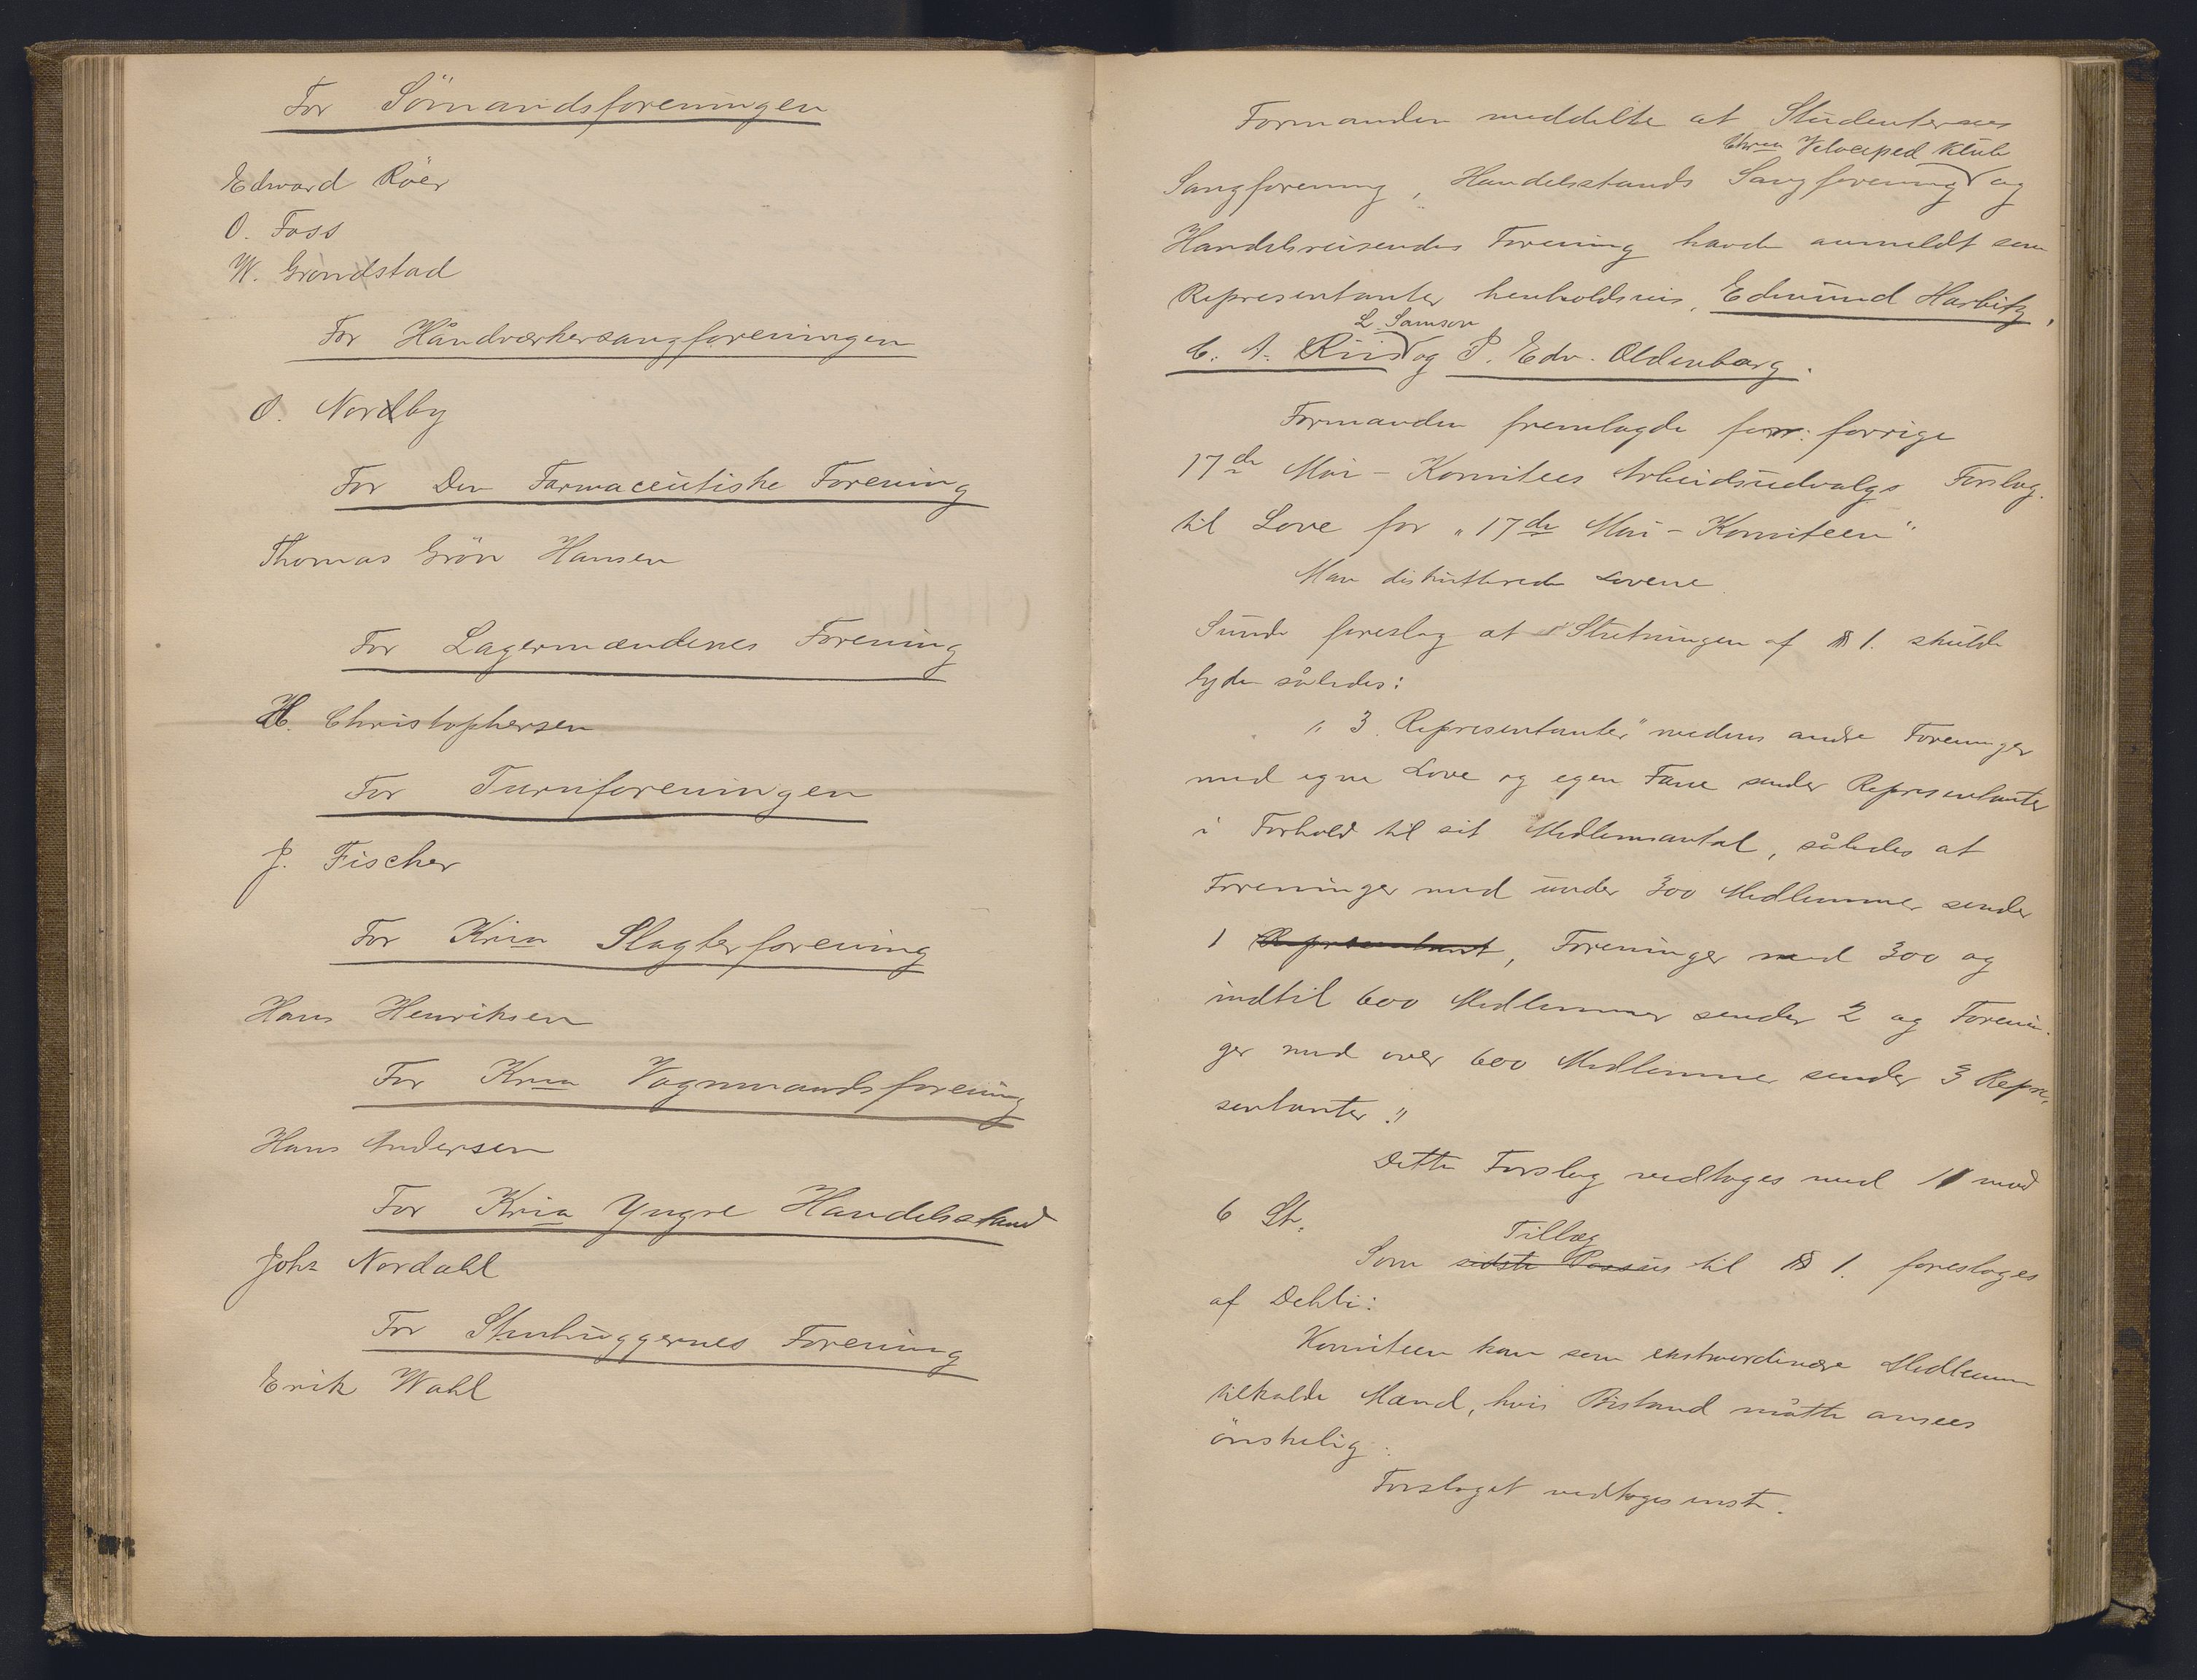 For Sömandsforeningen
Edward Röer
O. Foss
W. Gröndstad
For Håndværkersangforeningen
O. Nordby
For Den Farmaceutiske Forening
Thomas Grön Hansen
For Lagermændenes Forening
H. Christophersen
For Turnforeningen
J. Fischer
For Kria Slagterforening
Hans Henriksen
For Kria Vognmandsforening
Hans Andersen
For Kria Yngre Handelsstand
John Nordahl
For Stenhuggernes Forening
Erik Wahl
Formanden meddelte at Studenternes
Chria Velociped Klub
Sangforening, Handelsstands Sangforening og
Handelsreisendes Forening havde anmeldt som
Representanter henholdsvis, Edmund Harbitz,
L. Samson
C. A. Riis og P. Edv. Oldenborg.
Formanden fremlagde forr. forrige
17de Mai-Komitees Arbeidsudvalgs Forslag
til Love for "17de Mai-Komiteen"
Man diskutterede Lovene.
Sunde foreslog at Slutningen af § 1. skulde
lyde således:
"3 Representanter" medens andre Foreninger
med egne Love og egen Fane sender Representanter
i Forhold til sit Medlemsantal, således at
Foreninger med under 300 Medlemmer sender
1 Representant, Foreninger med 300 og
indtil 600 Medlemmer sender 2 og Forenin-
ger med over 600 Medlemmer sender 3 Repre-
sentanter."
Dette Forslag vedtoges med 11 mod
6 St.
Tillæg
Som sidste Passus til § 1. foresloges
af Dehli:
Komiteen kan som ekstraordinære Medlemmer
tilkalde Mænd, hvis Bistand måtte ansees
önskelig.
Forslaget vedtoges enst.